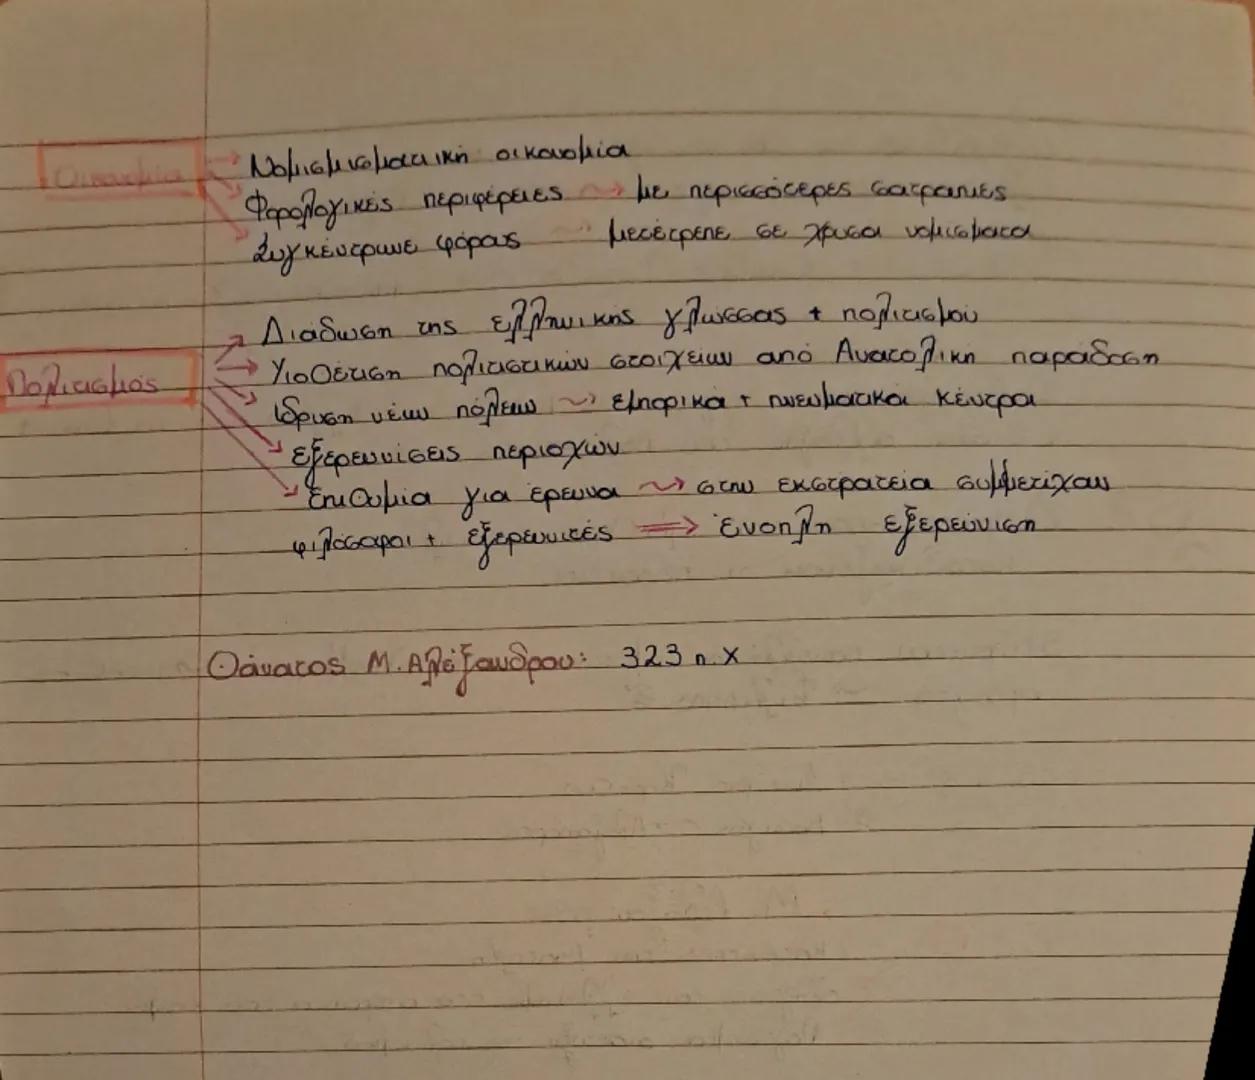 Οικονομία → Νομισμισματική οικονομία
→ Φορολογικές περιφέρειες ~> με περισσότερες σατραπιες
→ Συγκέντρωνε φόρους ~> μετέτρεπε σε χρυσα νομισματα
→ Διάδωση της ελληνικής γλώσσας + πολιτισμού
Πολιτισμός → Υιοθέτιση πολιτιστικών στοιχείων από Ανατολική παράδοση
→ ίδρυση νέων πόλεων ~> εμπορικα + πνευματικα κέντρα
→ εξερευνίσεις περιοχών
→ Επιθυμία για έρευνα ~> στην εκστρατεία συμμετίχαν
φιλόσοφοι + εξερευνιτές ⇒ ένοπλη εξερεύνιση
Θάνατος Μ. Αλέξανδρου: 323 π.Χ